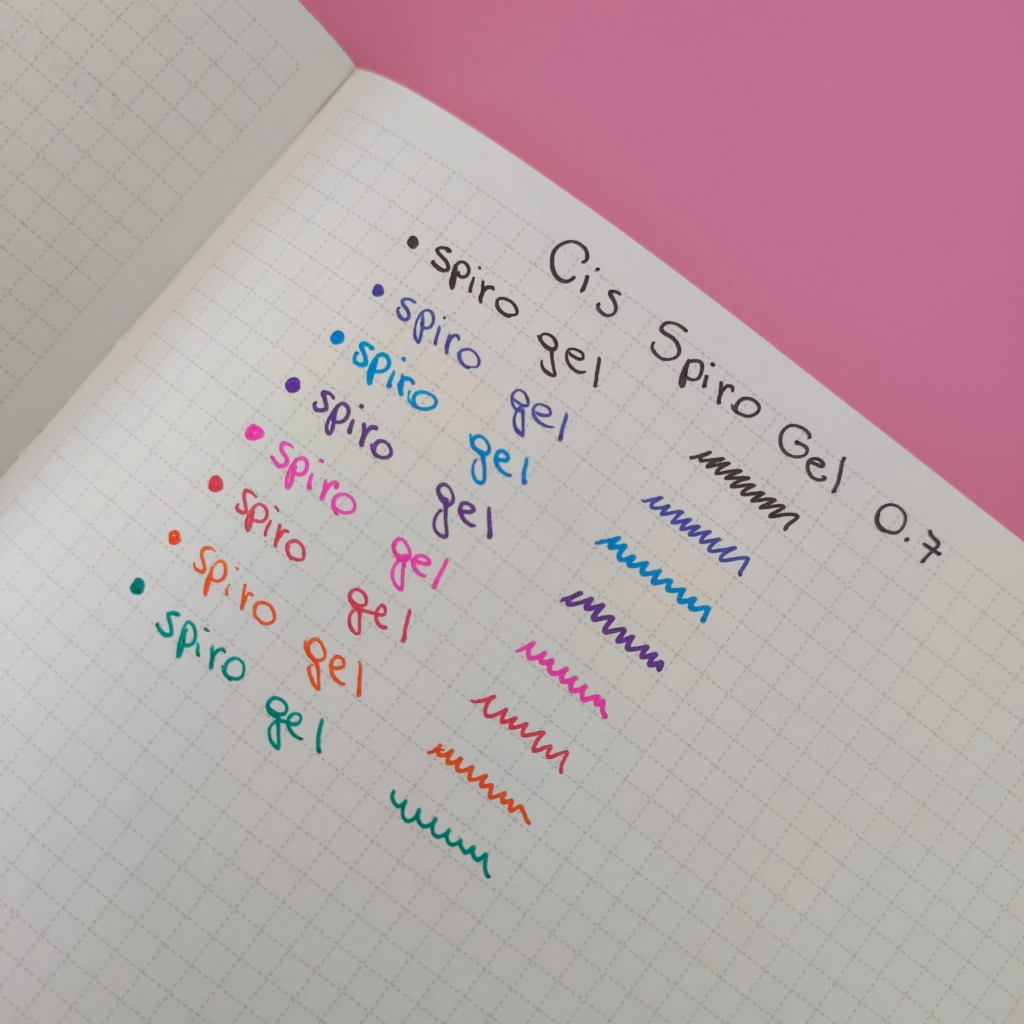 Cis Spiro Gel 0.7
• spiro gel
• spiro gel
• spiro gel
• spiro gel
• spiro gel
• spiro gel
• spiro gel
• spiro gel